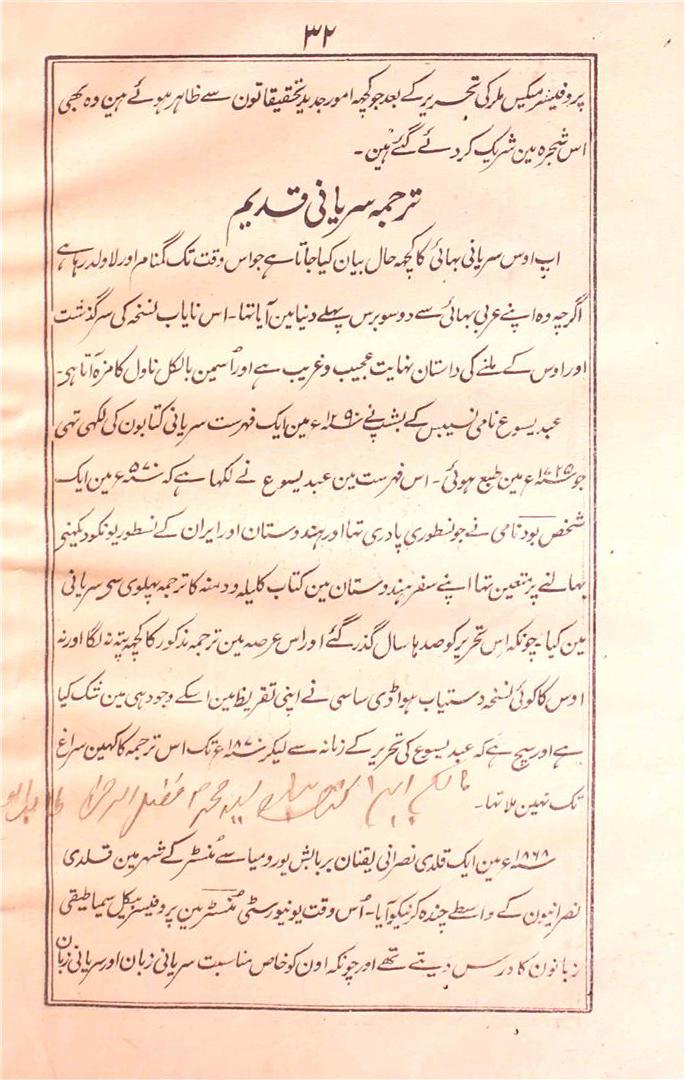 ۳۲
پروفیسر میکس ملر کی تحریر کے بعد جو کچھہ امور جدید تحقیقاتون سے ظاہر ہوئے ہین وہ بھی
اس شجرہ مین شریک کر دئے گئے ہین ۔
ترجمہ سریانی قدیم
اب اوس سریانی بھائی کا کچھہ حال بیان کیا جاتا ہے جو اس وقت تک گمنام اور لاولد رہا ہے
اگرچہ وہ اپنے عربی بھائی سے دو سو برس پہلے دنیا مین آیا تھا ۔ اس نایاب نسخہ کی سرگذشت
اور اوس کے ملنے کی داستان نہایت عجیب و غریب ہے اور اُسمین بالکل ناول کا مزہ آتا ہی ۔
عبد یسوع نامی نسیبس کے بشپ نے سنہ ۱۲۹۰ء مین ایک فہرست سریانی کتابون کی لکھی تہی
جو سنہ ۱۷۲۵ء مین طبع ہوئی ۔ اس فہرست مین عبد یسوع نے لکھا ہے کہ سنہ ۵۷۰ء مین ایک
شخص بود نامی نے جو نسطوری پادری تھا اور ہندوستان اور ایران کے نسطوریونکو دیکہنی
بھالنے پر متعین تھا اپنے سفر ہندوستان مین کتاب کلیلہ و دمنہ کا ترجمہ پہلوی سی سریانی
مین کیا ۔ چونکہ اس تحریر کو صدہا سال گذر گئے اور اس عرصہ مین ترجمہ مذکور کا کچہ پتہ نہ لگا اور نہ
اوس کا کوئی نسخہ دستیاب ہوا ڈی ساسی نے اپنی تقریظ مین اسکے وجود ہی مین شک کیا
ہے اور سچ ہے کہ عبد یسوع کی تحریر کے زمانہ سے لیکر سنہ ۱۸۷۰ء تک اس ترجمہ کا کہین سراغ
تک نہین ملا تھا ۔
سنہ ۱۸۶۸ء مین ایک قلدی نصرانی یقنان بر بابش یورومیا سے مُنسٹر کے شہر مین قلدی
نصرانیون کے واسطے چندہ کرنیکو آیا ۔ اُس وقت یونیورسٹی مُنسٹر مین پروفیسر بیکل سیماطیقی
زبانون کا درس دیتے تھے اور چونکہ اون کو خاص مناسبت سریانی زبان اور سریانی زبان